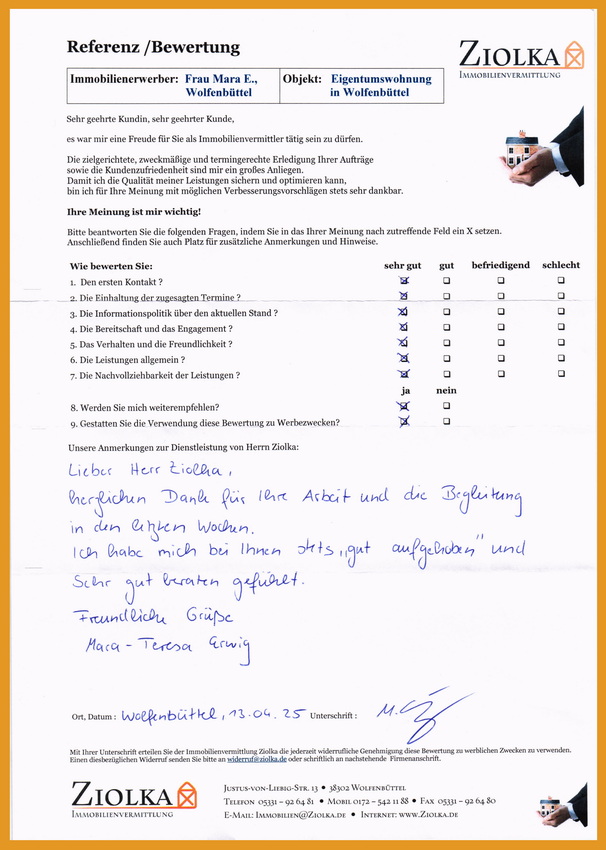 Referenz /Bewertung
ZIOLKA
IMMOBILIENVERMITTLUNG
Immobilienerwerber: Frau Mara E., Wolfenbüttel
Objekt: Eigentumswohnung in Wolfenbüttel
Sehr geehrte Kundin, sehr geehrter Kunde,
es war mir eine Freude für Sie als Immobilienvermittler tätig sein zu dürfen.
Die zielgerichtete, zweckmäßige und termingerechte Erledigung Ihrer Aufträge
sowie die Kundenzufriedenheit sind mir ein großes Anliegen.
Damit ich die Qualität meiner Leistungen sichern und optimieren kann,
bin ich für Ihre Meinung mit möglichen Verbesserungsvorschlägen stets sehr dankbar.
Ihre Meinung ist mir wichtig!
Bitte beantworten Sie die folgenden Fragen, indem Sie in das Ihrer Meinung nach zutreffende Feld ein X setzen.
Anschließend finden Sie auch Platz für zusätzliche Anmerkungen und Hinweise.
Wie bewerten Sie: sehr gut gut befriedigend schlecht
1. Den ersten Kontakt ?
2. Die Einhaltung der zugesagten Termine ?
3. Die Informationspolitik über den aktuellen Stand ?
4. Die Bereitschaft und das Engagement ?
5. Das Verhalten und die Freundlichkeit ?
6. Die Leistungen allgemein ?
7. Die Nachvollziehbarkeit der Leistungen ?
ja nein
8. Werden Sie mich weiterempfehlen?
9. Gestatten Sie die Verwendung diese Bewertung zu Werbezwecken?
Unsere Anmerkungen zur Dienstleistung von Herrn Ziolka:
Lieber Herr Ziolka,
herzlichen Dank für Ihre Arbeit und die Begleitung
in den letzten Wochen.
Ich habe mich bei Ihnen stets „gut aufgehoben" und
Sehr gut beraten gefühlt.
Freundliche Grüße
Mara-Teresa Erwig
Ort, Datum : Wolfenbüttel, 13.04.25 Unterschrift :
Mit Ihrer Unterschrift erteilen Sie der Immobilienvermittlung Ziolka die jederzeit widerrufliche Genehmigung diese Bewertung zu werblichen Zwecken zu verwenden.
Einen diesbezüglichen Widerruf senden Sie bitte an widerruf@ziolka.de oder schriftlich an nachstehende Firmenanschrift.
ZIOLKA
IMMOBILIENVERMITTLUNG
JUSTUS-VON-LIEBIG-STR. 13 • 38302 WOLFENBÜTTEL
TELEFON 05331 – 92 64 81 • MOBIL 0172 – 542 11 88 • FAX 05331 – 92 64 80
E-MAIL: IMMOBILIEN@ZIOLKA.DE • INTERNET: WWW.ZIOLKA.DE